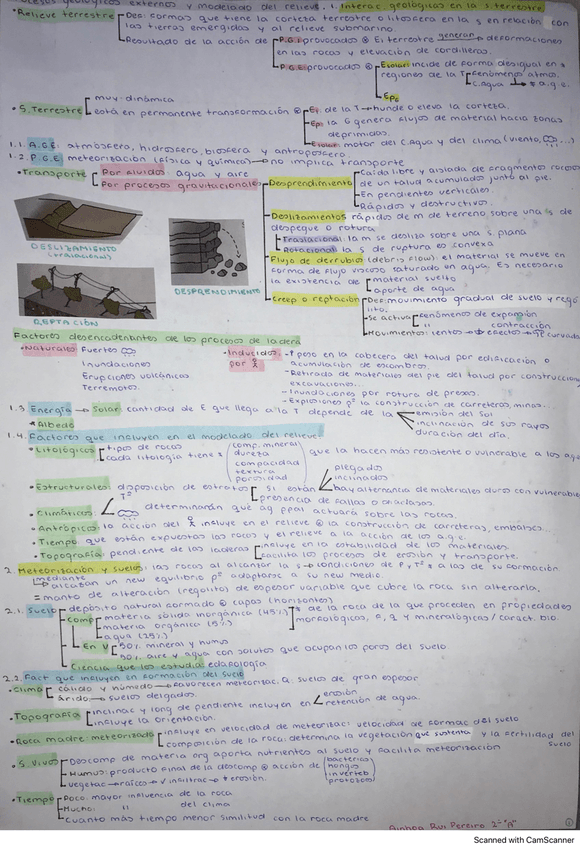 Procesos geológicos externos y modelado del relieve. 1. Interac. geológicas en la s. terrestre
•Relieve terrestre Des: formas que tiene la corteza terrestre o litosfera en la s en relación con
las tierras emergidas y al relieve submarino.
Resultado de la acción de P.G.I: provocados ⊗ Ei terrestre generan deformaciones
en las rocas y elevación de cordilleras.
P.G.E: provocados ⊗ Esolar: incide de forma desigual en ≠
regiones de la T fenómenos atmos.
C.agua → ≠ a.g.e.
Epg
•S. Terrestre muy dinámica
está en permanente transformación ⊗ Ei: de la T → hunde o eleva la corteza.
Ep: la G genera flujos de material hacia zonas
deprimidas.
Esolar: motor del C.agua y del clima (viento, ...)
1.1. A.G.E: atmósfera, hidrosfera, biosfera y antroposfera
1.2. P.G.E: meteorización (física y química) → no implica transporte
•Transporte Por fluidos: agua y aire
Por procesos gravitacionales
Desprendimiento Caída libre y aislada de fragmentos rocosos
de un talud acumulados junto al pie.
En pendientes verticales.
Rápidos y destructivos.
Deslizamientos rápidos de m de terreno sobre una s de
despegue o rotura
Traslacional la m se desliza sobre una s. plana
Rotacional la s de ruptura es convexa
Flujo de derrubio (debris flow) el material se mueve en
forma de flujo viscoso saturado un agua. Es necesario
la existencia de material suelto
aporte de agua
Creep o reptación Def: movimiento gradual de suelo y rego
lito.
Se activa fenómenos de expansión
" contracción
Movimientos: lentos → efectos → se curvada
DESLIZAMIENTO
(traslacional)
DESPRENDIMIENTO
REPTACIÓN
Factores desencadenantes de los procesos de ladera
•Naturales Fuertes
Inundaciones
Erupciones volcánicas
Terremotos.
•Inducidos por - ↑ peso en la cabecera del talud por edificación o
acumulación de escombros.
- Retirada de materiales del pie del talud por construccion,
excavaciones...
- Inundaciones por rotura de presas.
- Explosiones pº la construcción de carreteras, minas...
1.3 Energía → Solar: cantidad de E que llega a la T depende de la emisión del Sol
inclinación de sus rayos
duración del día.
*Albedo
1.4. Factores que influyen en el modelado del relieve
•Litológicos tipos de rocas
cada litología tiene ≠ comp. mineral
dureza
compacidad
textura
porosidad
que la hacen más resistente o vulnerable a los age
•Estructurales: disposición de estratos si están plegados
inclinados
hay alternancia de materiales duros con vulnerables
presencia de fallas o diaclasas.
•Climáticos: Tª
determinarán qué ag ppal actuará sobre las rocas.
•Antrópico: la acción del influye en el relieve ⊗ la construcción de carreteras, embalses.
•Tiempo que están expuestas las rocas y el relieve a la acción de los a.g.e.
•Topografía: pendiente de las laderas influye en la estabilidad de los materiales.
facilita los procesos de erosión y transporte.
2. Meteorización y suelos: las rocas al alcanzar la s → condiciones de P y Tª ≠ a las de su formación.
mediante
alcanzan un new equilibrio pª adaptarse a su new medio.
= manto de alteración (regolito) de espesor variable que cubre la roca sin alterarla.
2.1. Suelo depósito natural formado ⊗ capas (horizontes)
comp materia sólida inorgánica (45%)
materia orgánica (5%)
agua (25%)
≠ de la roca de la que proceden en propiedades
morfológicas, F, Q y mineralógicas / caract. bio.
En V 50% mineral y humus
50% aire y agua con solutos que ocupan los poros del suelo
Ciencia que los estudia: edafología
2.2. Fact que influyen en formación del suelo
•Clima cálido y húmedo → favorecen meteorizac. a suelos de gran espesor
Árido → suelos delgados.
•Topografía inclinac y long de pendiente influyen en erosión
retención de agua.
influye la orientación.
•Roca madre meteorizada influye en velocidad de meteorizac: velocidad de formac del suelo
composición de la roca: determina la vegetación que sustenta y la fertilidad del
suelo
•S. Vivos Descomp de materia org aporta nutrientes al suelo y facilita meteorización
Humus: producto final de la descomp ⊗ acción de bacterias
hongos
inverteb
protozoos
vegetac → raíces → ↑ infiltrac → ↓ erosión.
•Tiempo Poco: mayor influencia de la roca
Mucho: " del clima
Cuanto más tiempo menor similitud con la roca madre
Ainhoa Rui Pereiro 2º "A"
Scanned with CamScanner